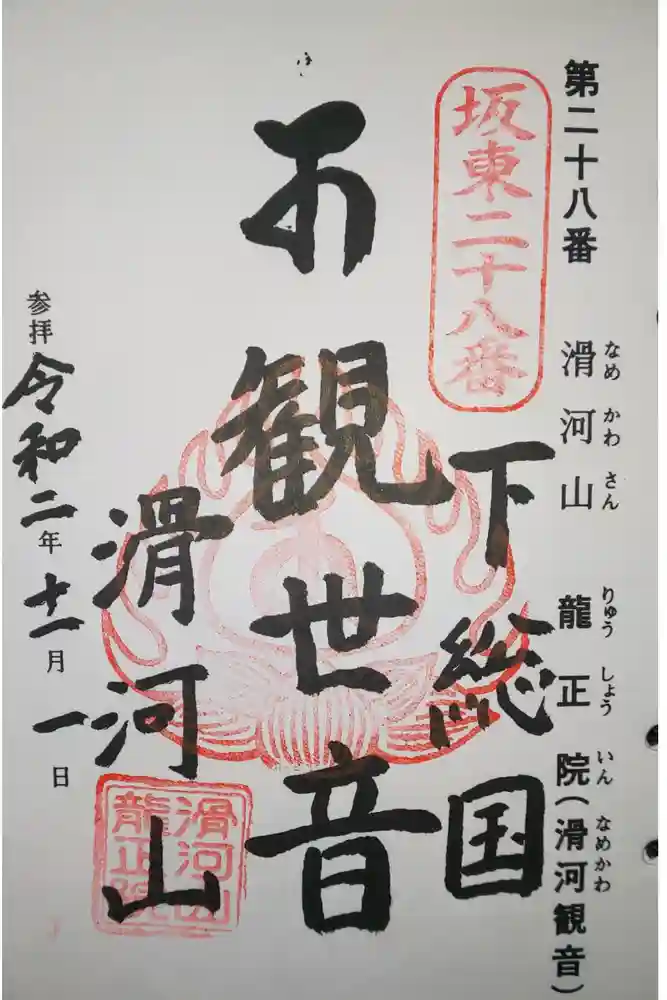 第二十八番 滑河山 龍正院(滑河観音)
なめ かわ さん りゅう しょう いん なめかわ
坂東二十八番
下総国
観世音
滑河山
滑河山
龍正院
参拝 令和二年十一月一日